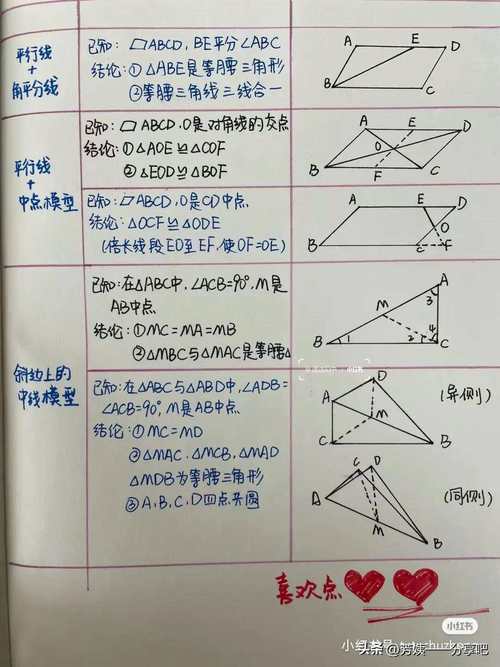 平行线
+
角平分线
已知: ▱ABCD, BE平分∠ABC
结论: ①△ABE是等腰三角形
②等腰三角线三线合一
A E D
B C
平行线
+
中点模型
已知: ▱ABCD, O是对角线的交点
结论: ①△AOE≌△COF
②△EOD≌△BOF
A E D
O
B F C
已知: ▱ABCD, O是CD中点
结论: △OCF≌△ODE
(倍长线段EO至EF,使OF=OE)
A E D
O
B C F
斜边上的
中线模型
已知:在△ABC中,∠ACB=90°,M是
AB中点
结论: ①MC=MA=MB
②△MBC与△MAC是等腰△
A
3
M
4
B 1 2 C
已知:在△ABC与△ABD中,∠ADB=
∠ACB=90°,M是AB中点
结论: ①MC=MD
②△MAC.△MCB,△MAD
△MDB为等腰三角形
③A,B,C,D四点共圆
D
A
M
C B
(异侧)
C D
A
M
B
(同侧)
喜欢点
小红书
小红书号
头条@芳姨一分享吧